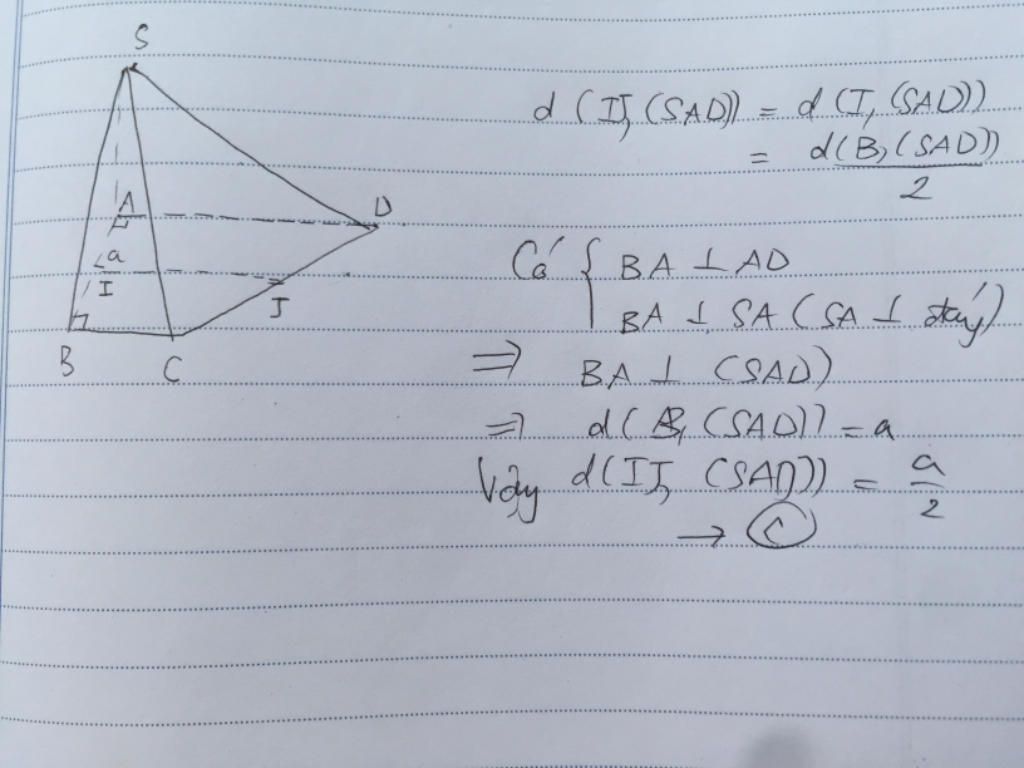 S
A
D
a
I
J
B
C
d (IJ, (SAD)) = d (I, (SAD))
= d(B, (SAD)) / 2
Có { BA ⊥ AD
BA ⊥ SA (SA ⊥ đáy)
⇒ BA ⊥ (SAD)
⇒ d(B, (SAD)) = a
Vậy d(IJ, (SAD)) = a/2
→ C